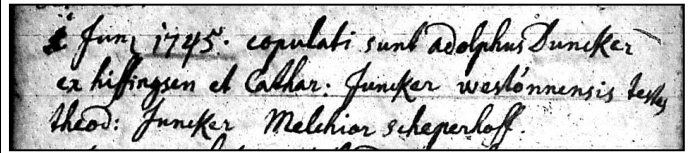 1 Junÿ 1745. copulati sunt adolphus Duncker
ex hiffingsen et Cathar: Juncker westönnensis testes
theod: Juncker Melchior scheperhoff.